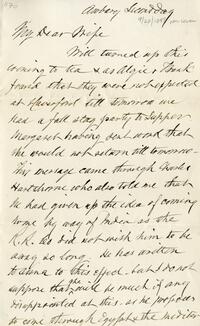 Awbury Sunday
My Dear Wife
Will turned up this
evening to tea & as Algie & Frank
found that they were not expected
at Haverford till tomorrow we
had a full stag party to supper
Margaret having sent word that
she would not return till tomorrow
This message came through
Hartshorne who also told me that
he had given up the idea of coming
home by way of India as the
R.R. Co did not wish him to be
away so long. He has written
to Anna to this effect. but I do not
suppose that she will be much if any
disappointed at this. as he proposes
to come through Egypt & the Mediter